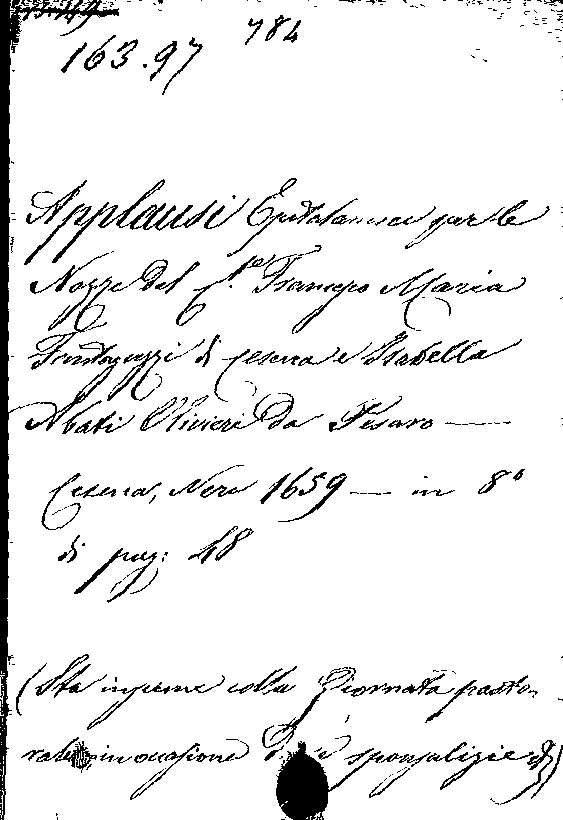 163.97 784
Applausi Epitalamici per le
Nozze del C.te Francesco Maria
Fantaguzzi di Cesena e Isabella
Abati Olivieri da Pesaro —
Cesena, Neri 1659 — in 8º
di pag: 48
(Sta insieme colla Giornata pasto-
rale in occasione di sponsalizie &)